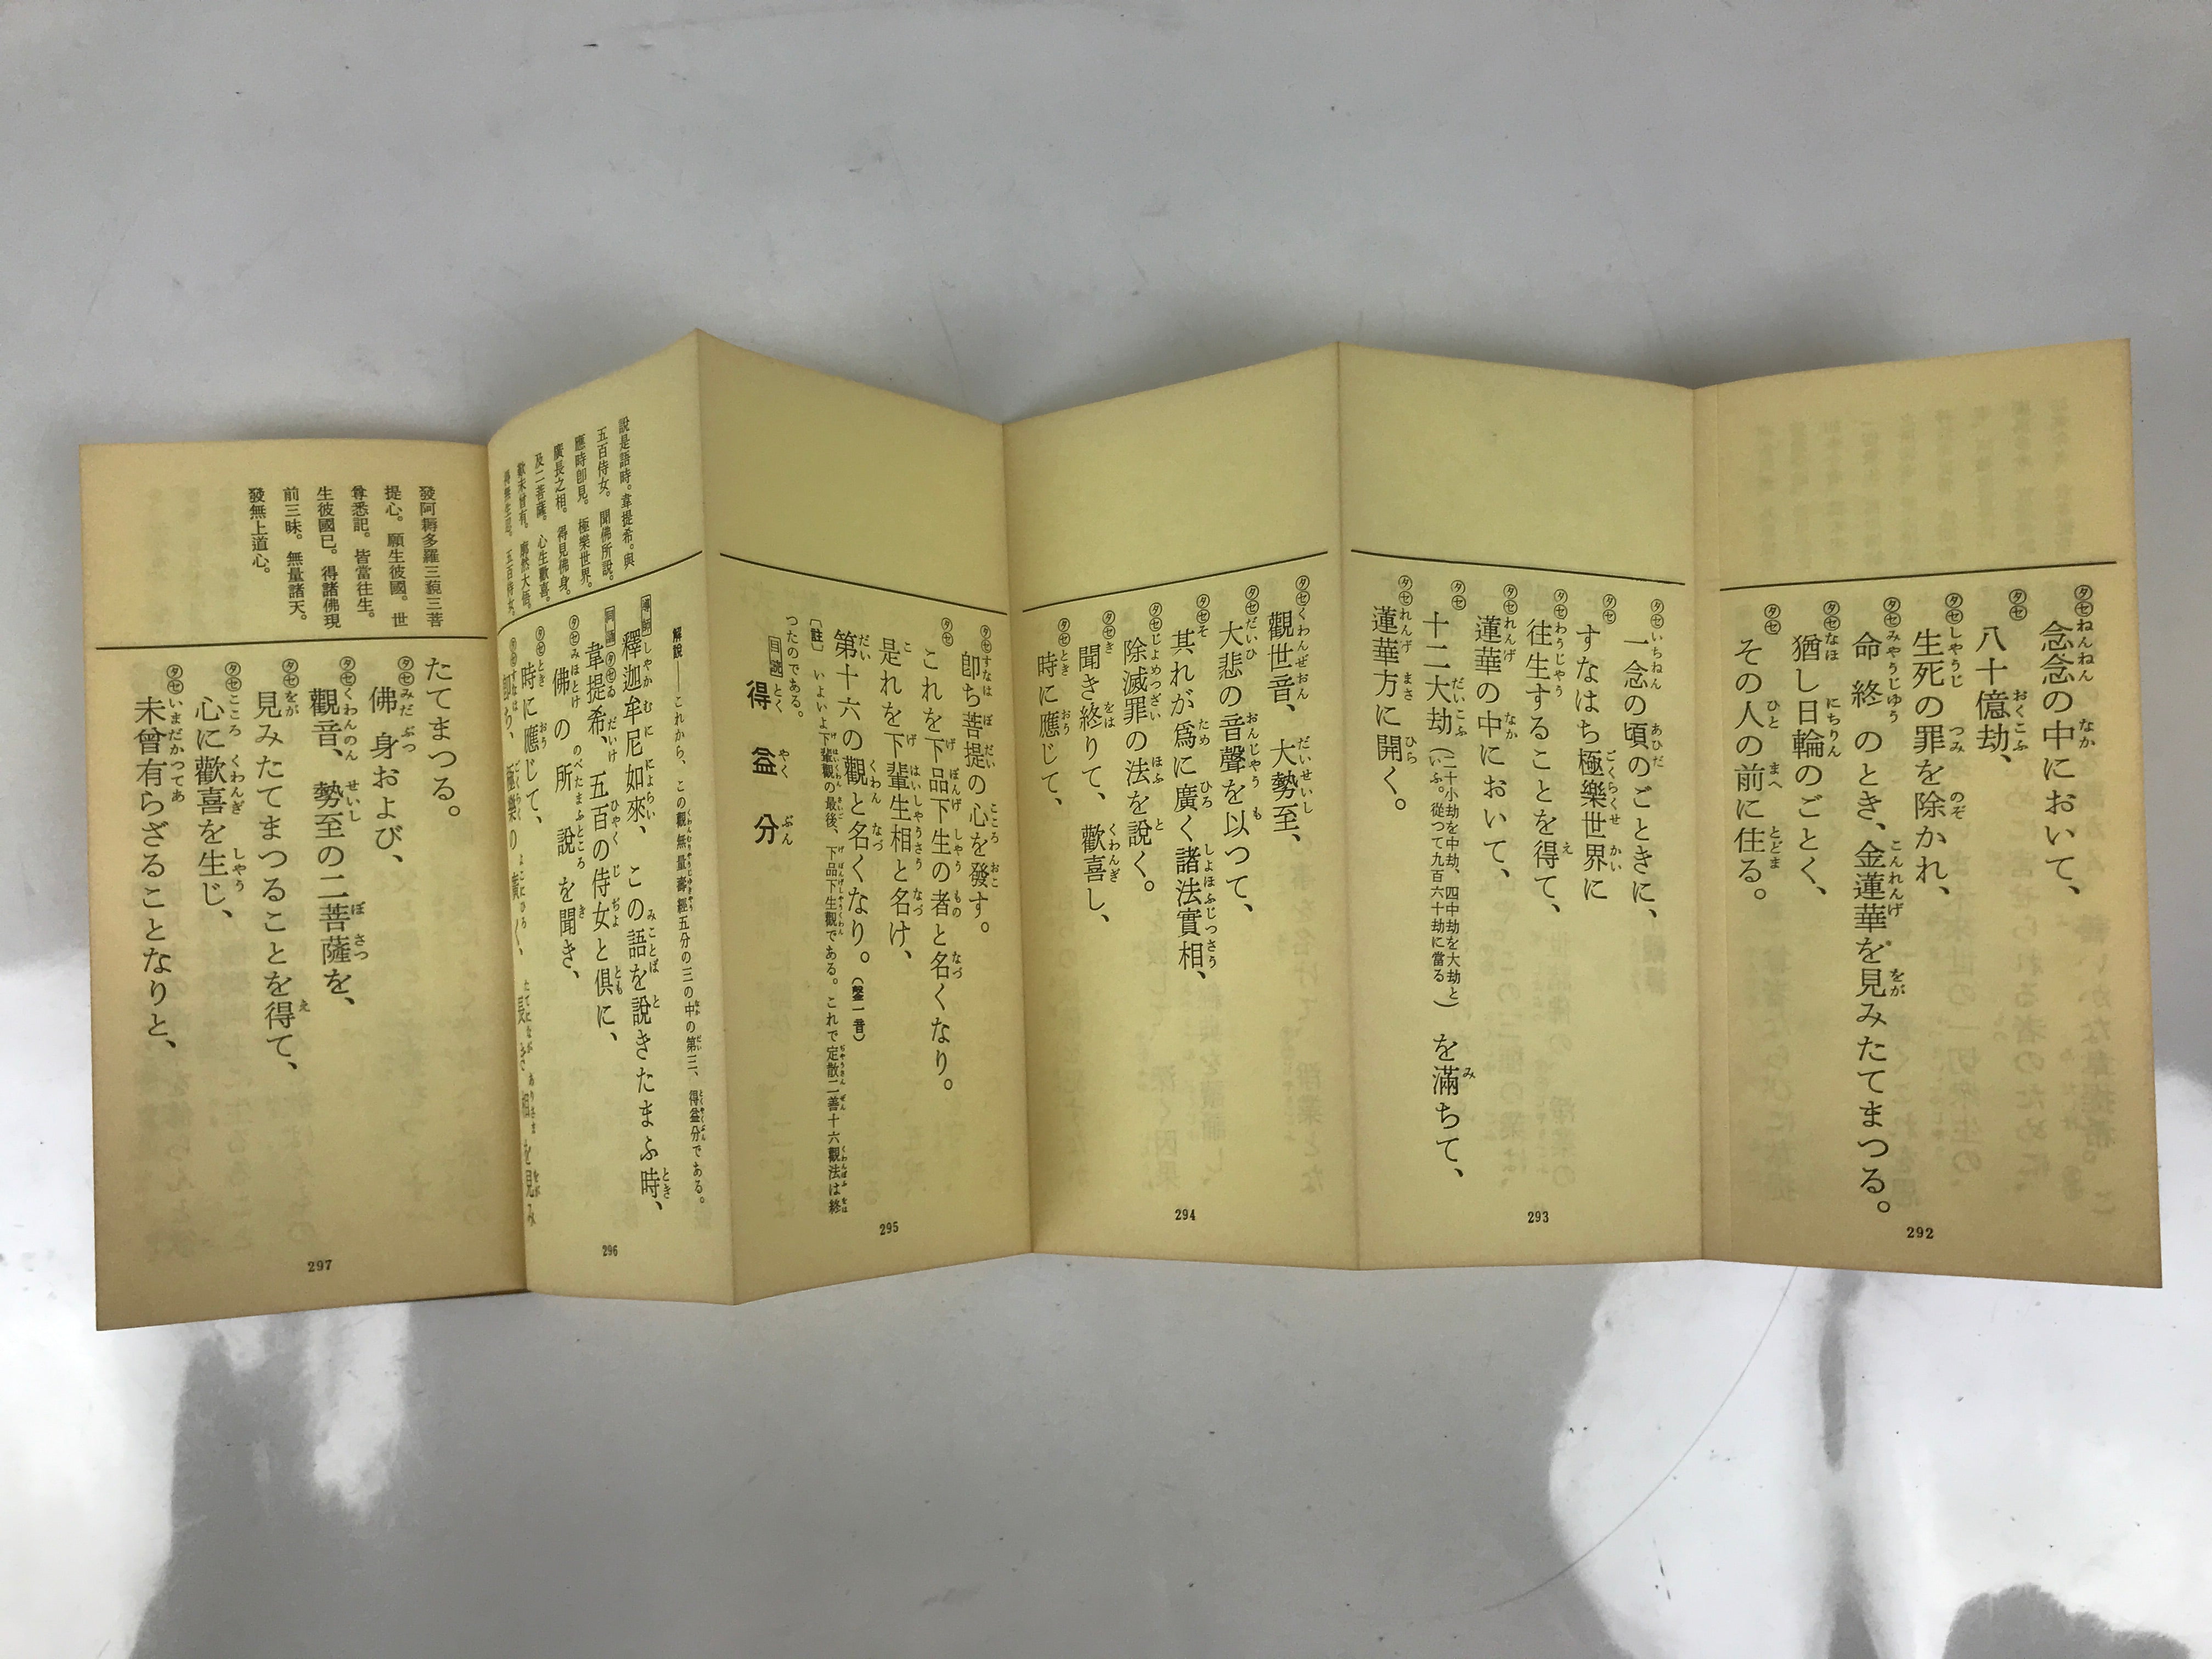 念念の中において、
八十億劫、
生死の罪を除かれ、
命終のとき、金蓮華を見みたてまつる。
猶し日輪のごとく、
その人の前に住る。
292
一念の頃のごときに、
すなはち極樂世界に
往生することを得て、
蓮華の中において、
十二大劫（二十小劫を中劫、四中劫を大劫といふ。從つて九百六十劫に當る）を滿ちて、
蓮華方に開く。
293
觀世音、大勢至、
大悲の音聲を以つて、
其れが爲に廣く諸法實相、
除滅罪の法を說く。
聞き終りて、歡喜し、
時に應じて、
294
卽ち菩提の心を發す。
これを下品下生の者と名くなり。
是れを下輩生相と名け、
第十六の觀と名くなり。（磬一音）
〔註〕いよいよ下輩觀の最後、下品下生觀である。これで定散二善十六觀法は終
つたのである。
目読 得益分
295
說是語時。韋提希。與
五百侍女。聞佛所說。
應時卽見。極樂世界。
廣長之相。得見佛身。
及二菩薩。心生歡喜。
歎未曾有。廓然大悟。
得無生忍。五百侍女。
解說――これから、この觀無量壽經五分の三の中の第三、得益分である。
導師 釋迦牟尼如來、この語を說きたまふ時、
同誦 韋提希、五百の侍女と俱に、
佛の所說を聞き、
時に應じて、
卽ち、極樂の廣く、長き相を見み
296
發阿耨多羅三藐三菩
提心。願生彼國。世
尊悉記。皆當往生。
生彼國已。得諸佛現
前三昧。無量諸天。
發無上道心。
たてまつる。
佛身および、
觀音、勢至の二菩薩を、
見みたてまつることを得て、
心に歡喜を生じ、
未曾有らざることなりと、
297